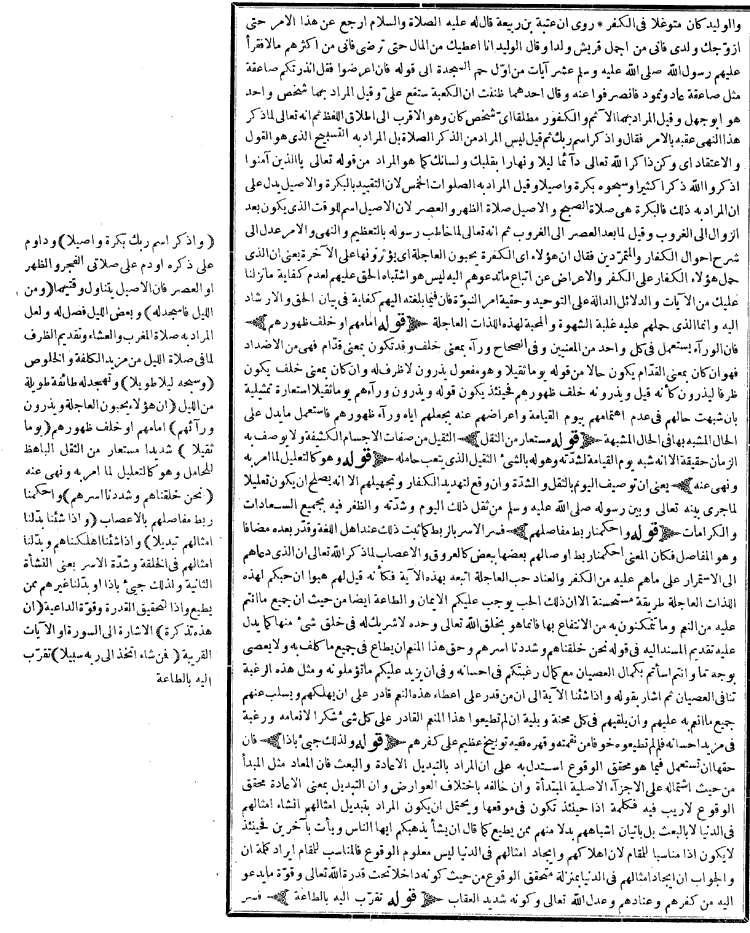 والوليد كان متوغلا فى الكفر * روى ان عتبة بن ربيعة قال له عليه الصلاة والسلام ارجع عن هذا الامر حتى
ازوجك ولدى فانى من اجمل قريش ولدا وقال الوليد انا اعطيك من المال حتى ترضى فانى من اكثرهم مالا فقرأ
عليهم رسول الله صلى الله عليه وسلم عشر آيات من اول حم السجدة الى قوله فان اعرضوا فقل انذرتكم صاعقة
مثل صاعقة عاد وثمود فانصرفوا عنه وقال احدهما ظننت ان الكعبة ستقع على وقيل المراد بهما شخص واحد
هو ابو جهل وقيل المراد بهما الآثم والكفور مطلقا اى شخص كان وهو الاقرب الى اطلاق اللفظ ثم انه تعالى لما ذكر
هذا النهى عقبه بالامر فقال واذكر اسم ربك ثم قيل ليس المراد من الذكر الصلاة بل المراد به التسبيح الذى هو القول
والاعتقاد اى وكن ذاكرا لله تعالى دآئما ليلا ونهارا بقلبك ولسانك كما هو المراد من قوله تعالى ياالذين آمنوا
اذكروا الله ذكرا كثيرا وسبحوه بكرة واصيلا وقيل المراد به الصلوات الخمس لان التقييد بالبكرة والاصيل يدل على
ان المراد به ذلك فالبكرة هى صلاة الصبح والاصيل صلاة الظهر والعصر لان الاصيل اسم للوقت الذى يكون بعد
الزوال الى الغروب وقيل لما بعد العصر الى الغروب ثم انه تعالى لما خاطب رسوله بالتعظيم والنهى والامر عدل الى
شرح احوال الكفار والمتمردين فقال ان هؤلاء اى الكفرة يحبون العاجلة اى يؤثرونها على الآخرة يعنى ان الذى
حمل هؤلاء الكفار على الكفر والاعراض عن اتباع ما تدعوهم اليه ليس هو اشتباه الحق عليهم لعدم كفاية ما نزلنا
عليك من الآيات والدلائل الدالة على التوحيد وحقية امر النبوة فان فيما بلغته اليهم كفاية فى بيان الحق والارشاد
اليه وانما الذى حملهم عليه غلبة الشهوة والمحبة لهذه اللذات العاجلة ﴿ قوله امامهم او خلف ظهورهم ﴾
فان الورآء يستعمل فى كل واحد من المعنيين وفى الصحاح ورآء بمعنى خلف وقد تكون بمعنى قدام فهى من الاضداد
فهو ان كان بمعنى القدام يكون حالا من قوله يوما ثقيلا وهو مفعول يذرون لا ظرف له وان كان بمعنى خلف يكون
ظرفا ليذرون كأنه قيل ويذرونه خلف ظهورهم فحينئذ يكون قوله ويذرون ورآءهم يوما ثقيلا استعارة تمثيلية
بان شبهت حالهم فى عدم اهتمامهم بيوم القيامة واعراضهم عنه بجعلهم اياه ورآء ظهورهم فاستعمل ما يدل على
الحال المشبه بها فى الحال المشبهة ﴿ قوله مستعار من الثقل ﴾ الثقيل من صفات الاجسام الكثيفة ولا يوصف به
الزمان حقيقة الا انه شبه يوم القيامة لشدته وهوله بالشئ الثقيل الذى يتعب حامله ﴿ قوله وهو كالتعليل لما امر به
ونهى عنه ﴾ يعنى ان توصيف اليوم بالثقل والشدة وان وقع لتهديد الكفار وتجهيلهم الا انه يصلح ان يكون تعليلا
لما جرى بينه تعالى وبين رسوله صلى الله عليه وسلم من ثقل ذلك اليوم وشدته والظفر فيه بجميع السعادات
والكرامات ﴿ قوله واحكمنا ربط مفاصلهم ﴾ فسر الاسر بالربط كما ثبت ذلك عند اهل اللغة وقدر بعده مضافا
وهو المفاصل فكان المعنى احكمنا ربط اوصالهم بعضها ببعض كالعروق والاعصاب لما ذكر الله تعالى ان الذى دعاهم
الى الاستمرار على ماهم عليه من الكفر والعناد حب العاجلة اتبعه بهذه الآية فكأنه قيل لهم هبوا ان حبكم لهذه
اللذات العاجلة طريقة مستحسنة الا ان ذلك الحب يوجب عليكم الايمان والطاعة ايضا من حيث ان جميع ما انتم
عليه من النعم وما تتمكنون به من الانتفاع بها فانما هو بخلق الله تعالى وحده لا شريك له فى خلق شئ منها كما يدل
عليه تقديم المسند اليه فى قوله نحن خلقناهم وشددنا اسرهم وحق هذا المنعم ان يطاع فى جميع ما كلف به ولا يعصى
بوجه تما وانتم اسأتم بكمال العصيان مع كمال رغبتكم فى احسانه وفى ان يزيد عليكم ما تؤملونه ومثل هذه الرغبة
تنافى العصيان ثم اشار بقوله واذا شئنا الآية الى ان من قدر على اعطاء هذه النعم قادر على ان يهلكهم ويسلب عنهم
جميع ما انعم به عليهم وان يلقيهم فى كل محنة وبلية ان لم تطيعوا هذا المنعم القادر على كل شئ شكرا لانعامه ورغبة
فى مزيد احسانه فلم لم تطيعوه خوفا من نقمته وقهره ففيه توبيخ عظيم على كفرهم ﴿ قوله ولذلك جيئ باذا ﴾ فان
حقها ان تستعمل فيما هو محقق الوقوع استدل به على ان المراد بالتبديل الاعادة والبعث فان المعاد مثل المبدأ
من حيث اشتماله على الاجزآء الاصلية المبتدأة وان خالفه باختلاف العوارض وان التبديل بمعنى الاعادة محقق
الوقوع لا ريب فيه فكلمة اذا حينئذ تكون فى موقعها ويحتمل ان يكون المراد بتبديل امثالهم انشاء امثالهم
فى الدنيا لا بالبعث بل باتيان اشباههم بدلا منهم ممن يطيع كما قال ان يشأ يذهبكم ايها الناس ويأت بآخرين فحينئذ
لا يكون اذا مناسبا للمقام لان اهلاكهم وايجاد امثالهم فى الدنيا ليس معلوم الوقوع فالمناسب للمقام ايراد كلمة ان
والجواب ان ايجاد امثالهم فى الدنيا بمنزلة متحقق الوقوع من حيث كونه داخلا تحت قدرة الله تعالى وقوة ما يدعو
اليه من كفرهم وعنادهم وعدل الله تعالى وكونه شديد العقاب ﴿ قوله تقرب اليه بالطاعة ﴾ فسر
( واذكر اسم ربك بكرة واصيلا ) وداوم
على ذكره او دم على صلاتى الفجر والظهر
او العصر فان الاصيل يتناول وقتيهما ( ومن
الليل فاسجد له ) وبعض الليل فصل له ولعل
المراد به صلاة المغرب والعشاء وتقديم الظرف
لما فى صلاة الليل من مزيد الكلفة والخلوص
( وسبحه ليلا طويلا ) وتهجد له طائفة طويلة
من الليل ( ان هؤلاء يحبون العاجلة ويذرون
ورآئهم ) امامهم او خلف ظهورهم ( يوما
ثقيلا ) شديدا مستعار من الثقل الباهظ
للحامل وهو كالتعليل لما امر به ونهى عنه
( نحن خلقناهم وشددنا اسرهم ) واحكمنا
ربط مفاصلهم بالاعصاب ( واذا شئنا بدلنا
امثالهم تبديلا ) واذا شئنا اهلكناهم وبدلنا
امثالهم فى الخلقة وشدة الاسر يعنى النشأة
الثانية ولذلك جيئ باذا او بدلنا غيرهم ممن
يطيع واذا لتحقيق القدرة وقوة الداعية ( ان
هذه تذكرة ) الاشارة الى السورة او الآيات
القريبة ( فمن شاء اتخذ الى ربه سبيلا ) تقرب
اليه بالطاعة